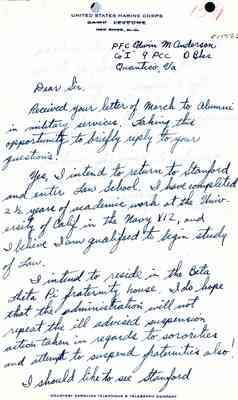 UNITED STATES MARINE CORPS
CAMP LEJEUNE
NEW RIVER, N.C.
PFC Edwin M Anderson
Co "I" 9 PCC D Blks
Quantico, Va
Dear Sir,
Received your letter of March to Alumni
in military services. Taking this
opportunity to briefly reply to your
questions!
Yes, I intend to return to Stanford
and enter Law School. I have completed
2½ years of academic work at the Univ-
ersity of Calif in the Navy V12, and
I believe I am qualified to begin study
of Law.
I intend to reside in the Beta
Theta Pi fraternity house. I do hope
that the administration will not
repeat the ill advised suspension
action taken in regards to sororities
and attempt to suspend fraternities also!
I should like to see Stanford
COURTESY CAROLINA TELEPHONE & TELEGRAPH COMPANY